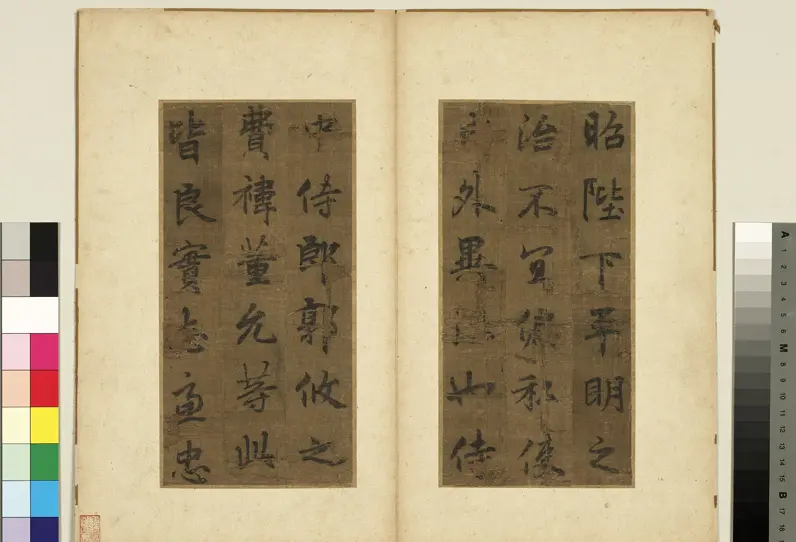 昭陛下平明之
治不宜偏私使
內外異法也侍
中侍郎郭攸之
費禕董允等此
皆良實志慮忠
A 1 2 3 4 5 6 M 8 9 10 11 12 13 14 15 B 17 18